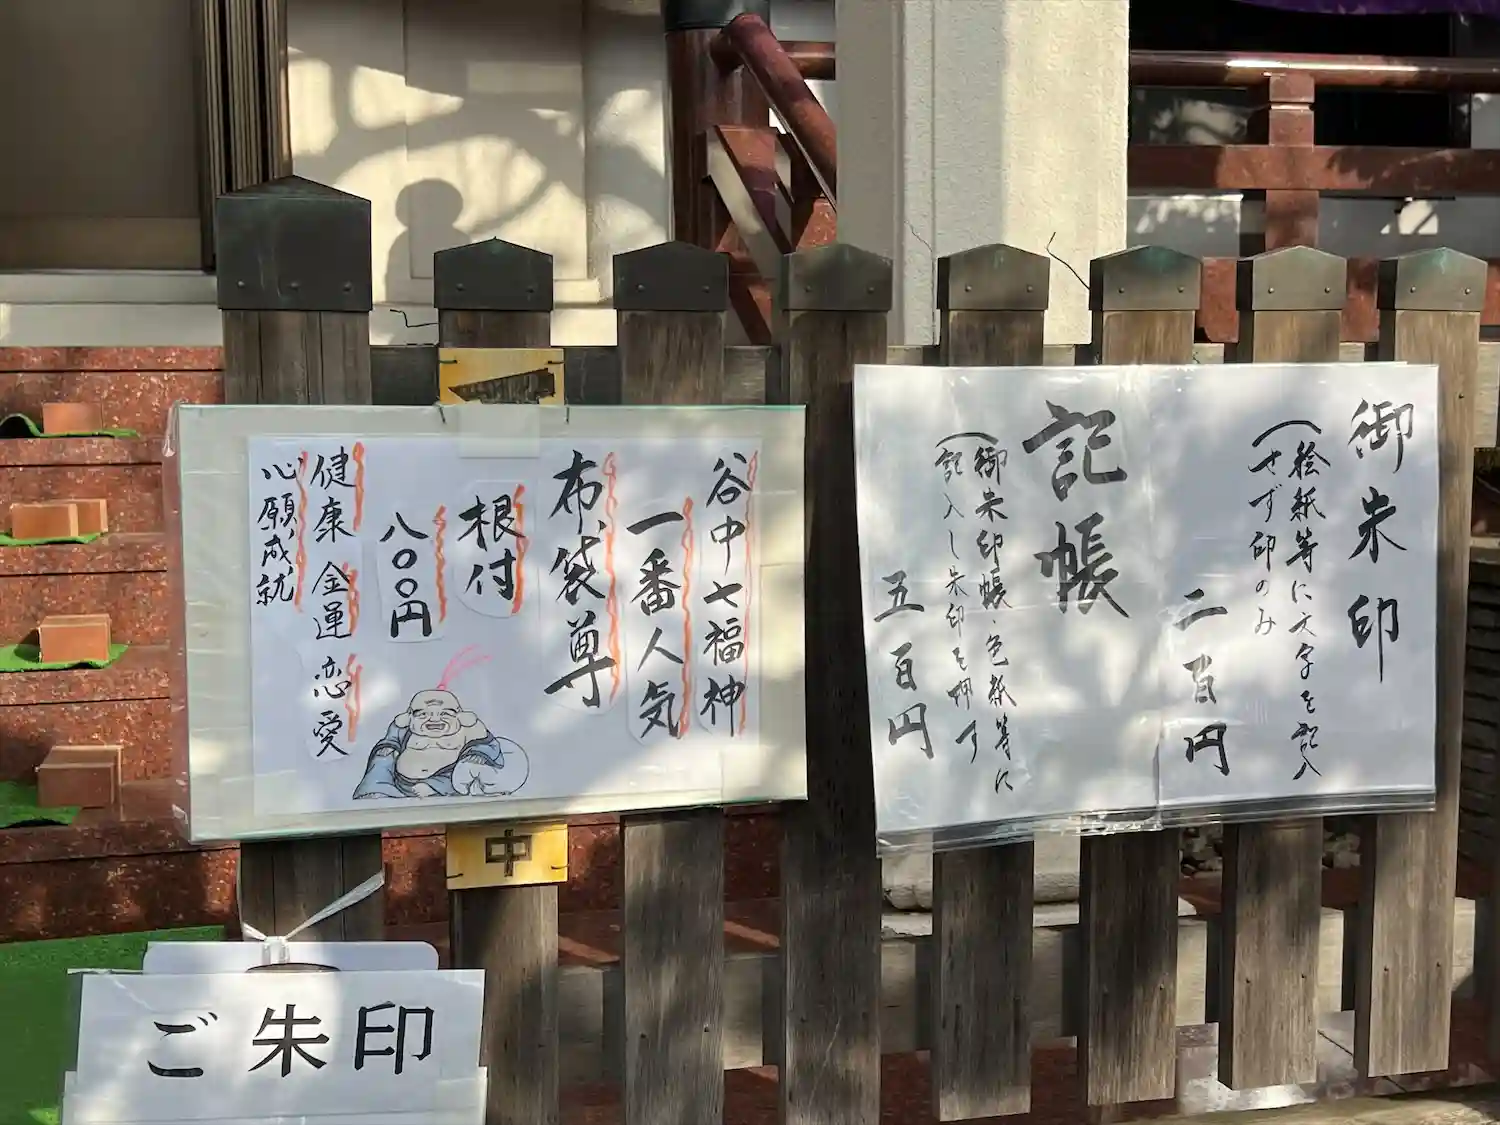 御朱印
（絵紙等に文字を記入
せず印のみ）
二百円
記帳
（御朱印帳・色紙等に
記入し朱印を押す）
五百円
谷中七福神
一番人気
布袋尊
根付
八〇〇円
健康 金運 恋愛
心願成就
中
ご朱印